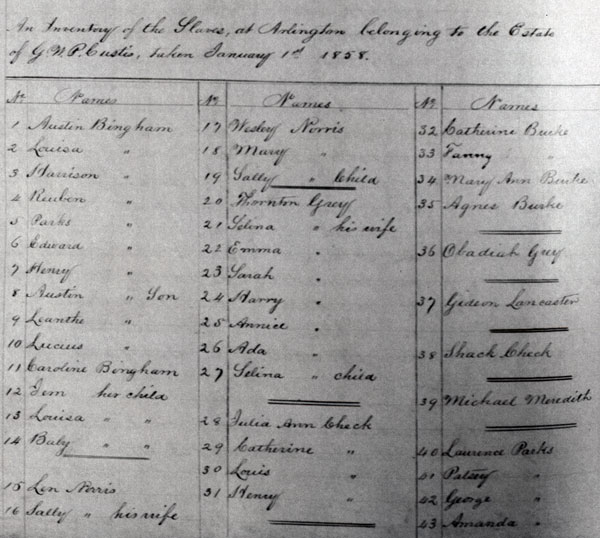 An Inventory of the Slaves, at Arlington belonging to the Estate
of G.W.P. Custis, taken January 1st 1858.
No. Names
1 Austin Bingham
2 Louisa "
3 Harrison "
4 Reuben "
5 Parks "
6 Edward "
7 Henry "
8 Austin " Son
9 Leanthe "
10 Lucius "
11 Caroline Bingham
12 Tem her child
13 Louisa " "
14 Baby " "
15 Len Norris
16 Sally " his wife
No. Names
17 Wesley Norris
18 Mary "
19 Sally " Child
20 Thornton Grey
21 Selina " his wife
22 Emma "
23 Sarah "
24 Harry "
25 Annice "
26 Ada "
27 Selina " child
28 Julia Ann Check
29 Catherine "
30 Louis "
31 Henry "
No. Names
32 Catherine Burke
33 Fanny "
34 Mary Ann Burke
35 Agnes Burke
36 Obadiah Grey
37 Gideon Lancaster
38 Shack Check
39 Michael Meredith
40 Laurence Parks
41 Patsey "
42 George "
43 Amanda "